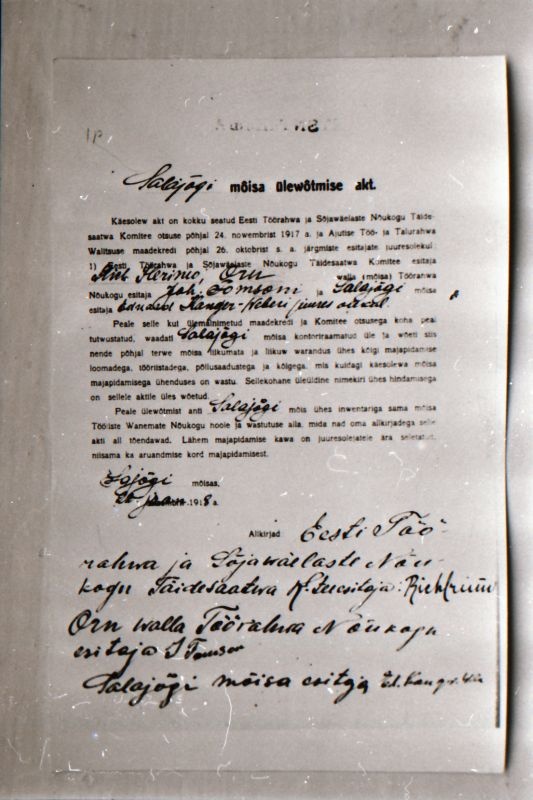 Salajõgi mõisa ülewõtmise akt.
Käesolew akt on kokku seatud Eesti Töörahwa ja Sõjawäelaste Nõukogu Täide-
saatwa Komitee otsuse põhjal 24. nowembrist 1917 a. ja Ajutise Töö- ja Talurahwa
Walitsuse maadekredi põhjal 26. oktobrist s. a. järgmiste esitajate juuresolekul:
1) Eesti Töörahwa ja Sõjawäelaste Nõukogu Täidesaatwa Komitee esitaja
Orn walla (mõisa) Töörahwa
Nõukogu esitaja Joh. Tomson ja Salajõgi mõisa
esitaja juures olekul.
Peale selle kut ülemalnimetud maadekredi ja Komitee otsusega koha peal
tutwustatud, waadati Salajõgi mõisa kontoriraamatud üle ja wõeti siis
nende põhjal terwe mõisa liikumata ja liikuw warandus ühes kõigi majapidamise
loomadega, tööriistadega, põllusaadustega ja kõigega, mis kuidagi käesolewa mõisa
majapidamisega ühenduses on wastu. Seilekohane üleüldine nimekiri ühes hindamisega
on sellele aktile üles wõetud.
Peale ülewõtmist anti Salajõgi mõis ühes inwentariga sama mõisa
Tööliste Wanemate Nõukogu hoole ja wastutuse alla, mida nad oma allkirjadega selle
akti all tõendawad. Lähem majapidamise kawa on juuresolejatele ära seletatud,
niisama ka aruandmise kord majapidamisest.
Sajõgi mõisas,
1918 a.
Allkirjad: Eesti Töö-
rahwa ja Sõjawäelaste Nõu-
kogu Täidesaatwa K.
Orn walla Töörahwa Nõukogu
esitaja J Tomson
Salajõgi mõisa esitja